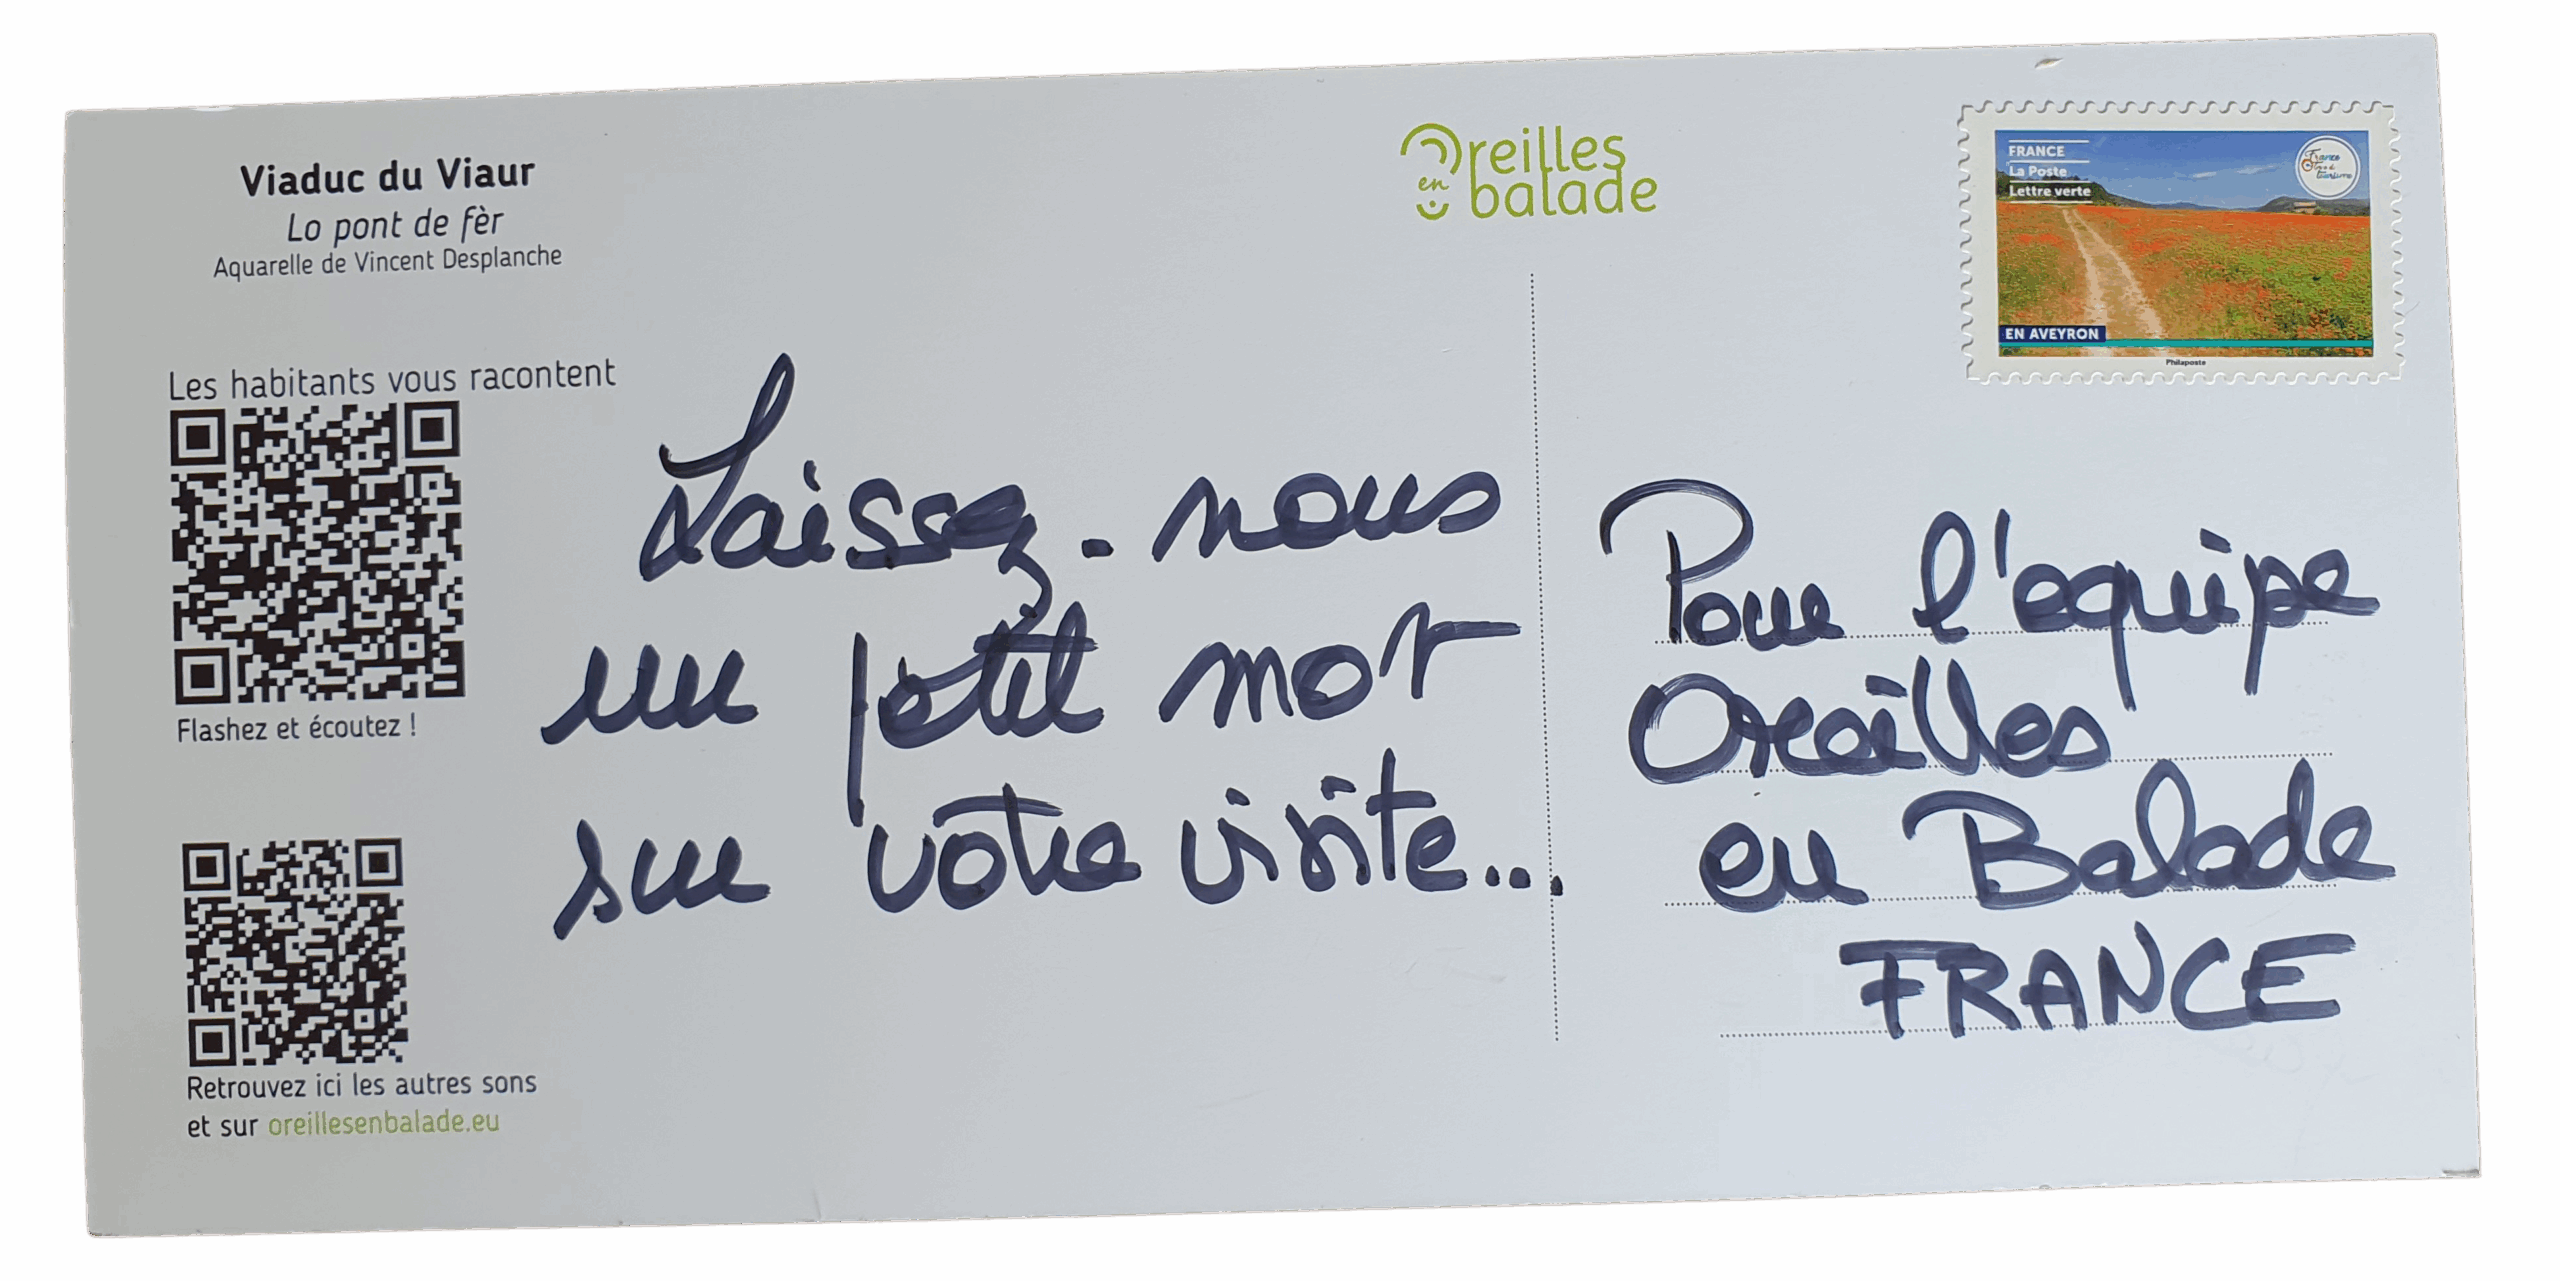 Viaduc du Viaur
Lo pont de fèr
Aquarelle de Vincent Desplanche
Les habitants vous racontent
Flashez et écoutez !
Retrouvez ici les autres sons
et sur oreillesenbalade.eu
Laissez-nous
un petit mot
sur votre visite...
Oreilles
en balade
FRANCE
La Poste
Lettre verte
France
Terre de
tourisme
EN AVEYRON
Philaposte
Pour l'equipe
Oreilles
en Balade
FRANCE